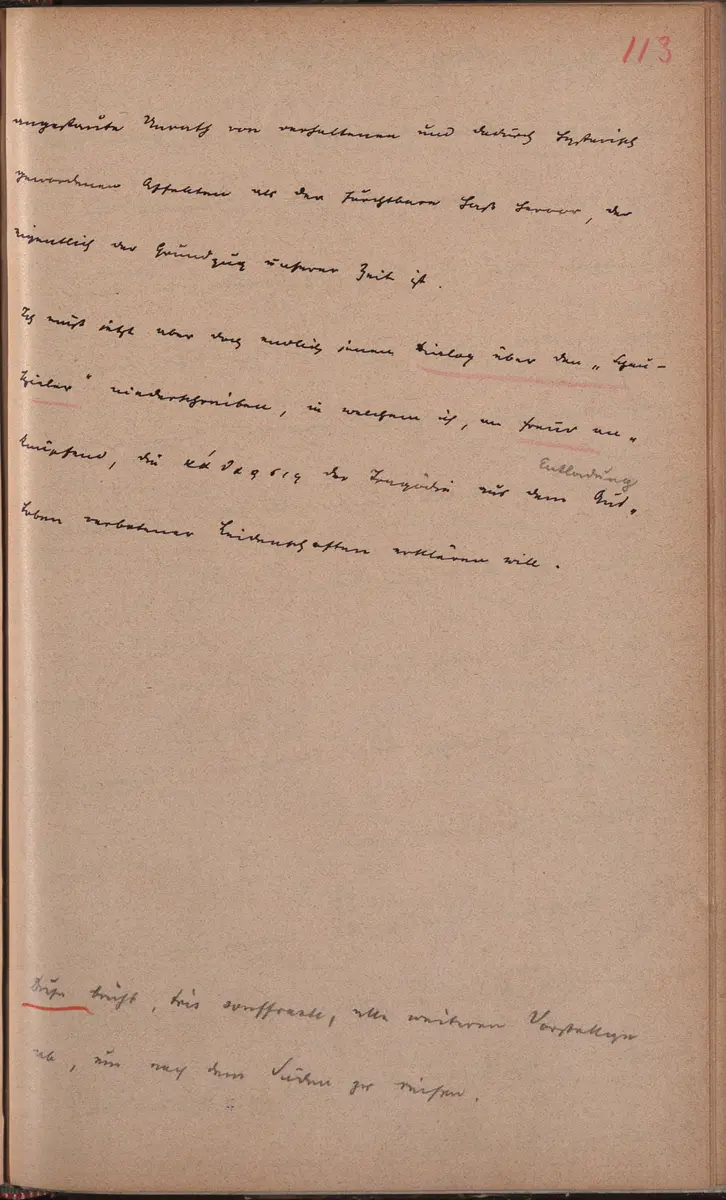 113
angestaute Unrath von verhaltenen und dadurch hysterisch
gewordenen Affekten als der furchtbare Haß hervor, der
eigentlich der Grundzug unserer Zeit ist.
Ich muß jetzt aber doch endlich jenen Dialog über den „Schau-
spieler" niederschreiben, in welchem ich, an Freud an„
knüpfend, die κάθαρσις der Tragödie aus dem Aus„
Entladung
leben verbotener Leidenschaften erklären will.
Duse bricht, très souffrante, alle weiteren Vorstellgn
ab, um nach dem Süden zu reisen.